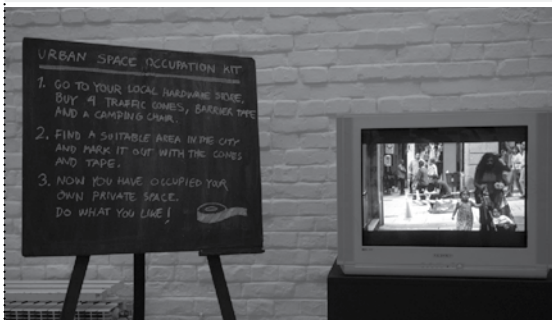 URBAN SPACE OCCUPATION KIT
1. GO TO YOUR LOCAL HARDWARE STORE,
BUY 4 TRAFFIC CONES, BARRIER TAPE
AND A CAMPING CHAIR.
2. FIND A SUITABLE AREA IN THE CITY
AND MARK IT OUT WITH THE CONES
AND TAPE.
3. NOW YOU HAVE OCCUPIED YOUR
OWN PRIVATE SPACE.
DO WHAT YOU LIKE!